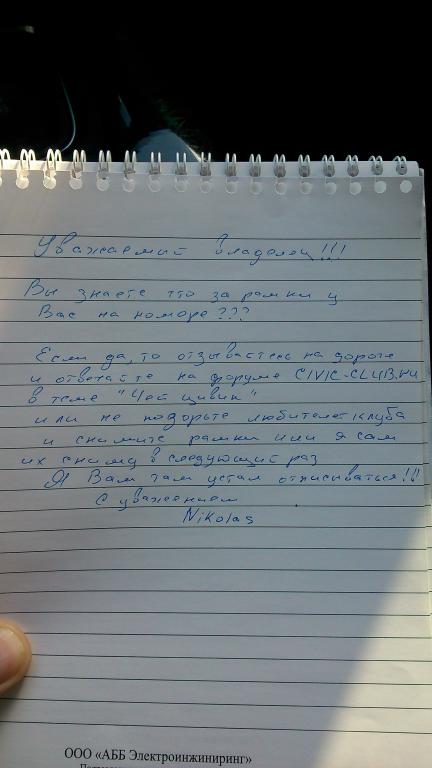 Уважаемый владелец!!!
Вы знаете что за рамки у
Вас на номоре???
Если да, то отзывайтесь на дороге
и отвечайте на форуме CIVIC-CLUB.ru
в теме "Чей цивик"
или не подорьте любителей клуба
и снимите рамки или я сам
их сниму в следующий раз
Я Вам там устал отписываться!!!
С уважением
Nikolas
ООО «АББ Электроинжиниринг»